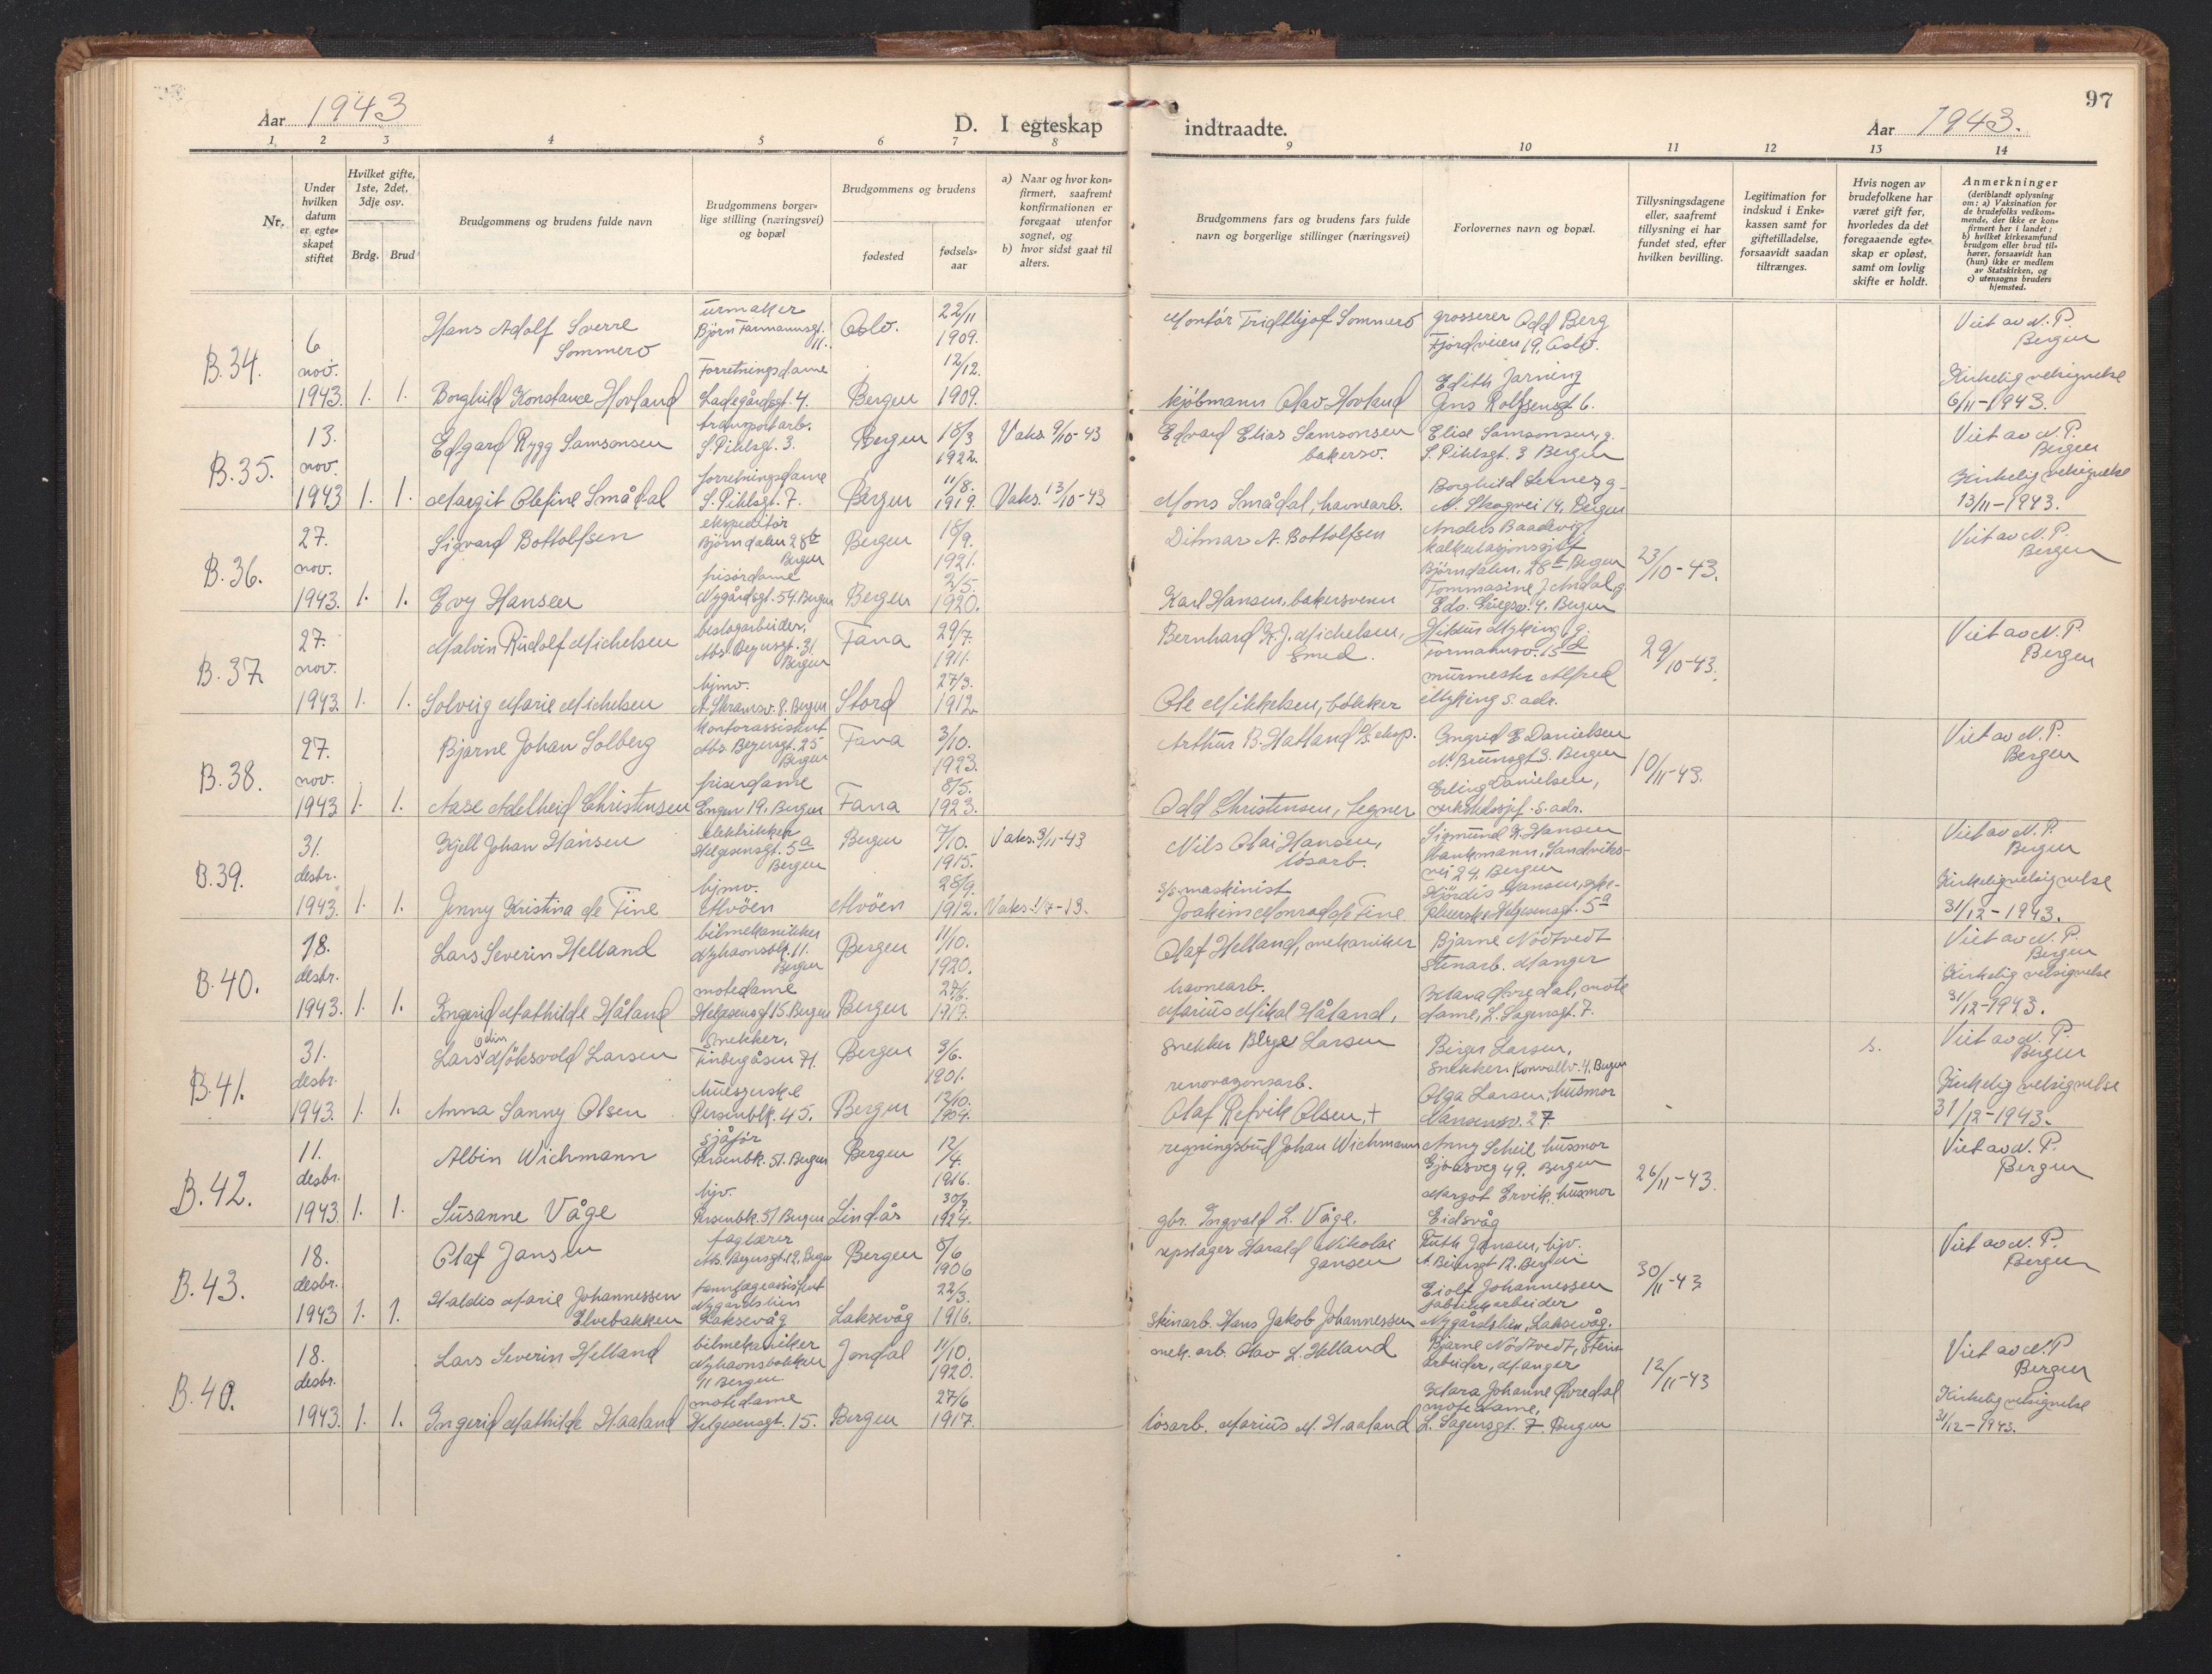 97
Aar 1943
D. I egteskap indtraadte.
Aar 1943.
1 2 3 4 5 6 7 8 9 10 11 12 13 14
Nr.
Under hvilken datum er egteskapet stiftet
Hvilket gifte, 1ste, 2det, 3dje osv.
Brdg. Brud
Brudgommens og brudens fulde navn
Brudgommens borgerlige stilling (næringsvei) og bopæl
Brudgommens og brudens
fødested
fødselsaar
a) Naar og hvor konfirmert, saafremt konfirmationen er foregaat utenfor sognet, og
b) hvor sidst gaat til alters.
Brudgommens fars og brudens fars fulde navn og borgerlige stillinger (næringsvei)
Forlovernes navn og bopæl.
Tillysningsdagene eller, saafremt tillysning ei har fundet sted, efter hvilken bevilling.
Legitimation for indskud i Enkekassen samt for giftetilladelse, forsaavidt saadan tiltrænges.
Hvis nogen av brudefolkene har været gift før, hvorledes da det foregaaende egteskap er opløst, samt om lovlig skifte er holdt.
Anmerkninger
(deriblandt oplysning om: a) Vaksination for de brudefolks vedkommende, der ikke er konfirmert her i landet; b) hvilket kirkesamfund brudgom eller brud tilhører, forsaavidt han (hun) ikke er medlem av Statskirken, og c) utensogns bruders hjemsted.
B.34. 6 nov. 1943. 1. 1.
Hans Adolf Sverre Sommerø
urmaker Bjørn Farmannsgt. 11.
Oslo. 22/11 1909.
Montör Fridthjof Sommerö
grosserer Odd Berg Fjordveien 19, Oslo.
Viet av N.P. Bergen
Borghild Konstance Hovland
Forretningsdame Ladegårdsgt. 4.
Bergen 12/12. 1909.
kjöbmann Olav Hovland
Edith Jarning Jens Rolfsensgt 6.
Kirkelig velsignelse 6/11-1943.
B.35. 13. nov. 1943 1. 1.
Edgard Rygg Samsonsen
transportarb. S. Pihlsgt. 3.
Bergen 18/3 1922.
Vaks. 9/10-43
Edvard Elias Samsonsen bakersv.
Elise Samsonsen, g. S. Pihlsgt. 3 Bergen
Viet av N.P. Bergen
Margit Olefine Smådal
forretningsdame S. Pihlsgt. 7.
Bergen 11/8. 1919.
Vaks. 13/10-43
Mons Smådal, havnearb.
Borghild g. N. Skogvei 14, Bergen
Kirkelig velsignelse 13/11-1943.
B.36. 27. nov. 1943. 1. 1.
Sigvard Bottolfsen
ekspeditör Björndalen 28b Bergen
Bergen 18/9. 1921.
Ditmar A. Bottolfsen
Anders Baadsvig kalkulasjonssjef Björndalen, 28b Bergen
23/10-43.
Viet av N.P. Bergen
Evy Hansen
frisørdame Nygårdsgt. 54. Bergen
Bergen 2/5. 1920.
Karl Hansen, bakersvenn
Tommasine J. Andal, g. Edv. Griegsv. 4. Bergen
B.37. 27. nov. 1943 1. 1.
Malvin Rudolf Michelsen
beslagarbeider, Abs. Beyersgt. 31. Bergen
Fana 29/7. 1911.
Bernhard K. J. Michelsen, smed.
Hildur Myking, g. Formannsv. 15d
29/10-43.
Viet av N.P. Bergen
Solveig Marie Michelsen
hjmv. A. Skramsv. 8. Bergen
Stord 27/3. 1912.
Ole Mikkelsen, bökker
murmester Alfred Myking s. adr.
B.38. 27. nov. 1943 1. 1.
Bjarne Johan Solberg
Kontorassistent Abs. Beyersgt. 25 Bergen
Fana 3/10. 1923.
Arthur B. Hatland eksp.
Ingrid E Danielsen N. Brunsgt 3. Bergen
10/11-43.
Viet av N.P. Bergen
Aase Adelheid Christensen
frisørdame Engen 19. Bergen
Fana 8/5. 1923.
Odd Christensen, tegner
Erling Danielsen, verkstedsjef. s. adr.
B.39. 31. desbr. 1943. 1. 1.
Kjell Johan Hansen
elektrikker Helgesensgt. 5a Bergen
Bergen 7/10. 1915.
Vaks. 3/11-43
Nils Olai Hansen, lösarb.
Sigmund K. Hansen bankmann, Sandviksvei 24. Bergen
Viet av N.P. Bergen
Jenny Kristina de Fine
hjmv. Alvöen
Alvöen 28/9. 1912.
Vaks. 1/7-13.
maskinist Joakim Monrad de Fine
Hjördis Hansen, Helgesensgt. 5a
Kirkelig velsignelse 31/12-1943.
B.40. 18. desbr. 1943. 1. 1.
Lars Severin Helland
bilmekanikker Nyhavnsbk. 11. Bergen
Bergen 11/10. 1920.
Olaf Helland, mekaniker
Bjarne Nödtvedt stenarb. Manger
Viet av N.P. Bergen
Ingerid Mathilde Håland
motedame Helgesensgt 15. Bergen
Bergen 27/6. 1917.
havnearb. Marius Mikal Håland,
Klara Øvredal, mote dame, L. Sagensgt. 7.
Kirkelig velsignelse 31/12-1943.
B.41. 31. desbr. 1943. 1. 1.
Lars Odin Möksvold Larsen
Snekker, Finbergåsen 71.
Bergen 3/6. 1901.
snekker Larsen
Birger Larsen, snekker Konvallv. 4. Bergen
s.
Viet av N.P. Bergen
Anna Sanny Olsen
Persenbk. 45.
Bergen 12/10. 1904.
renovasjonsarb. Olaf Refvik Olsen, +
Olga Larsen, husmor Nansensv. 27
Kirkelig velsignelse 31/12-1943.
B.42. 11. desbr. 1943 1. 1.
Albin Wichmann
sjåför Persenbk. 51. Bergen
Bergen 12/4. 1916.
regningsbud Johan Wichmann
Anny Scheil husmor Gjøasveg 49. Bergen
26/11-43.
Viet av N.P. Bergen
Susanne Våge
hjv. Persenbk. 51 Bergen
Lindås 30/9 1924.
gbr. Ingvald L. Våge.
Margot Ervik, husmor Eidsvåg
B.43. 18. desbr. 1943 1. 1.
Olaf Jansen
faglærer Abs. Beyersgt. 12, Bergen
Bergen 8/6 1906
repslager Harald Nikolai Jansen
Ruth Jansen, hjv. A. Beiersgt 12. Bergen
30/11-43
Viet av N.P. Bergen
Haldis Marie Johannessen Elvebakken
tannlægeassistent Nygårdslien Laksevåg
Laksevåg 22/3. 1916.
stenarb. Hans Jakob Johannessen
Eiolf Johannessen fabrikkarbeider Nygårdslien, Laksevåg.
B.40. 18. desbr. 1943. 1. 1.
Lars Severin Helland
bilmekaniker Nyhavnsbakken 11 Bergen
Jondal 11/10. 1920.
mek. arb. Olav L. Helland
Bjarne Nödtvedt, stenarbeider, Manger
12/11-43
Viet av N.P. Bergen
Ingerid Mathilde Haaland
motedame Helgesensgt. 15.
Bergen 27/6 1917.
lösarb. Marius M. Haaland
Klara Johanne Øvredal motedame, L. Sagensgt. 7 Bergen
Kirkelig velsignelse 31/12-1943.